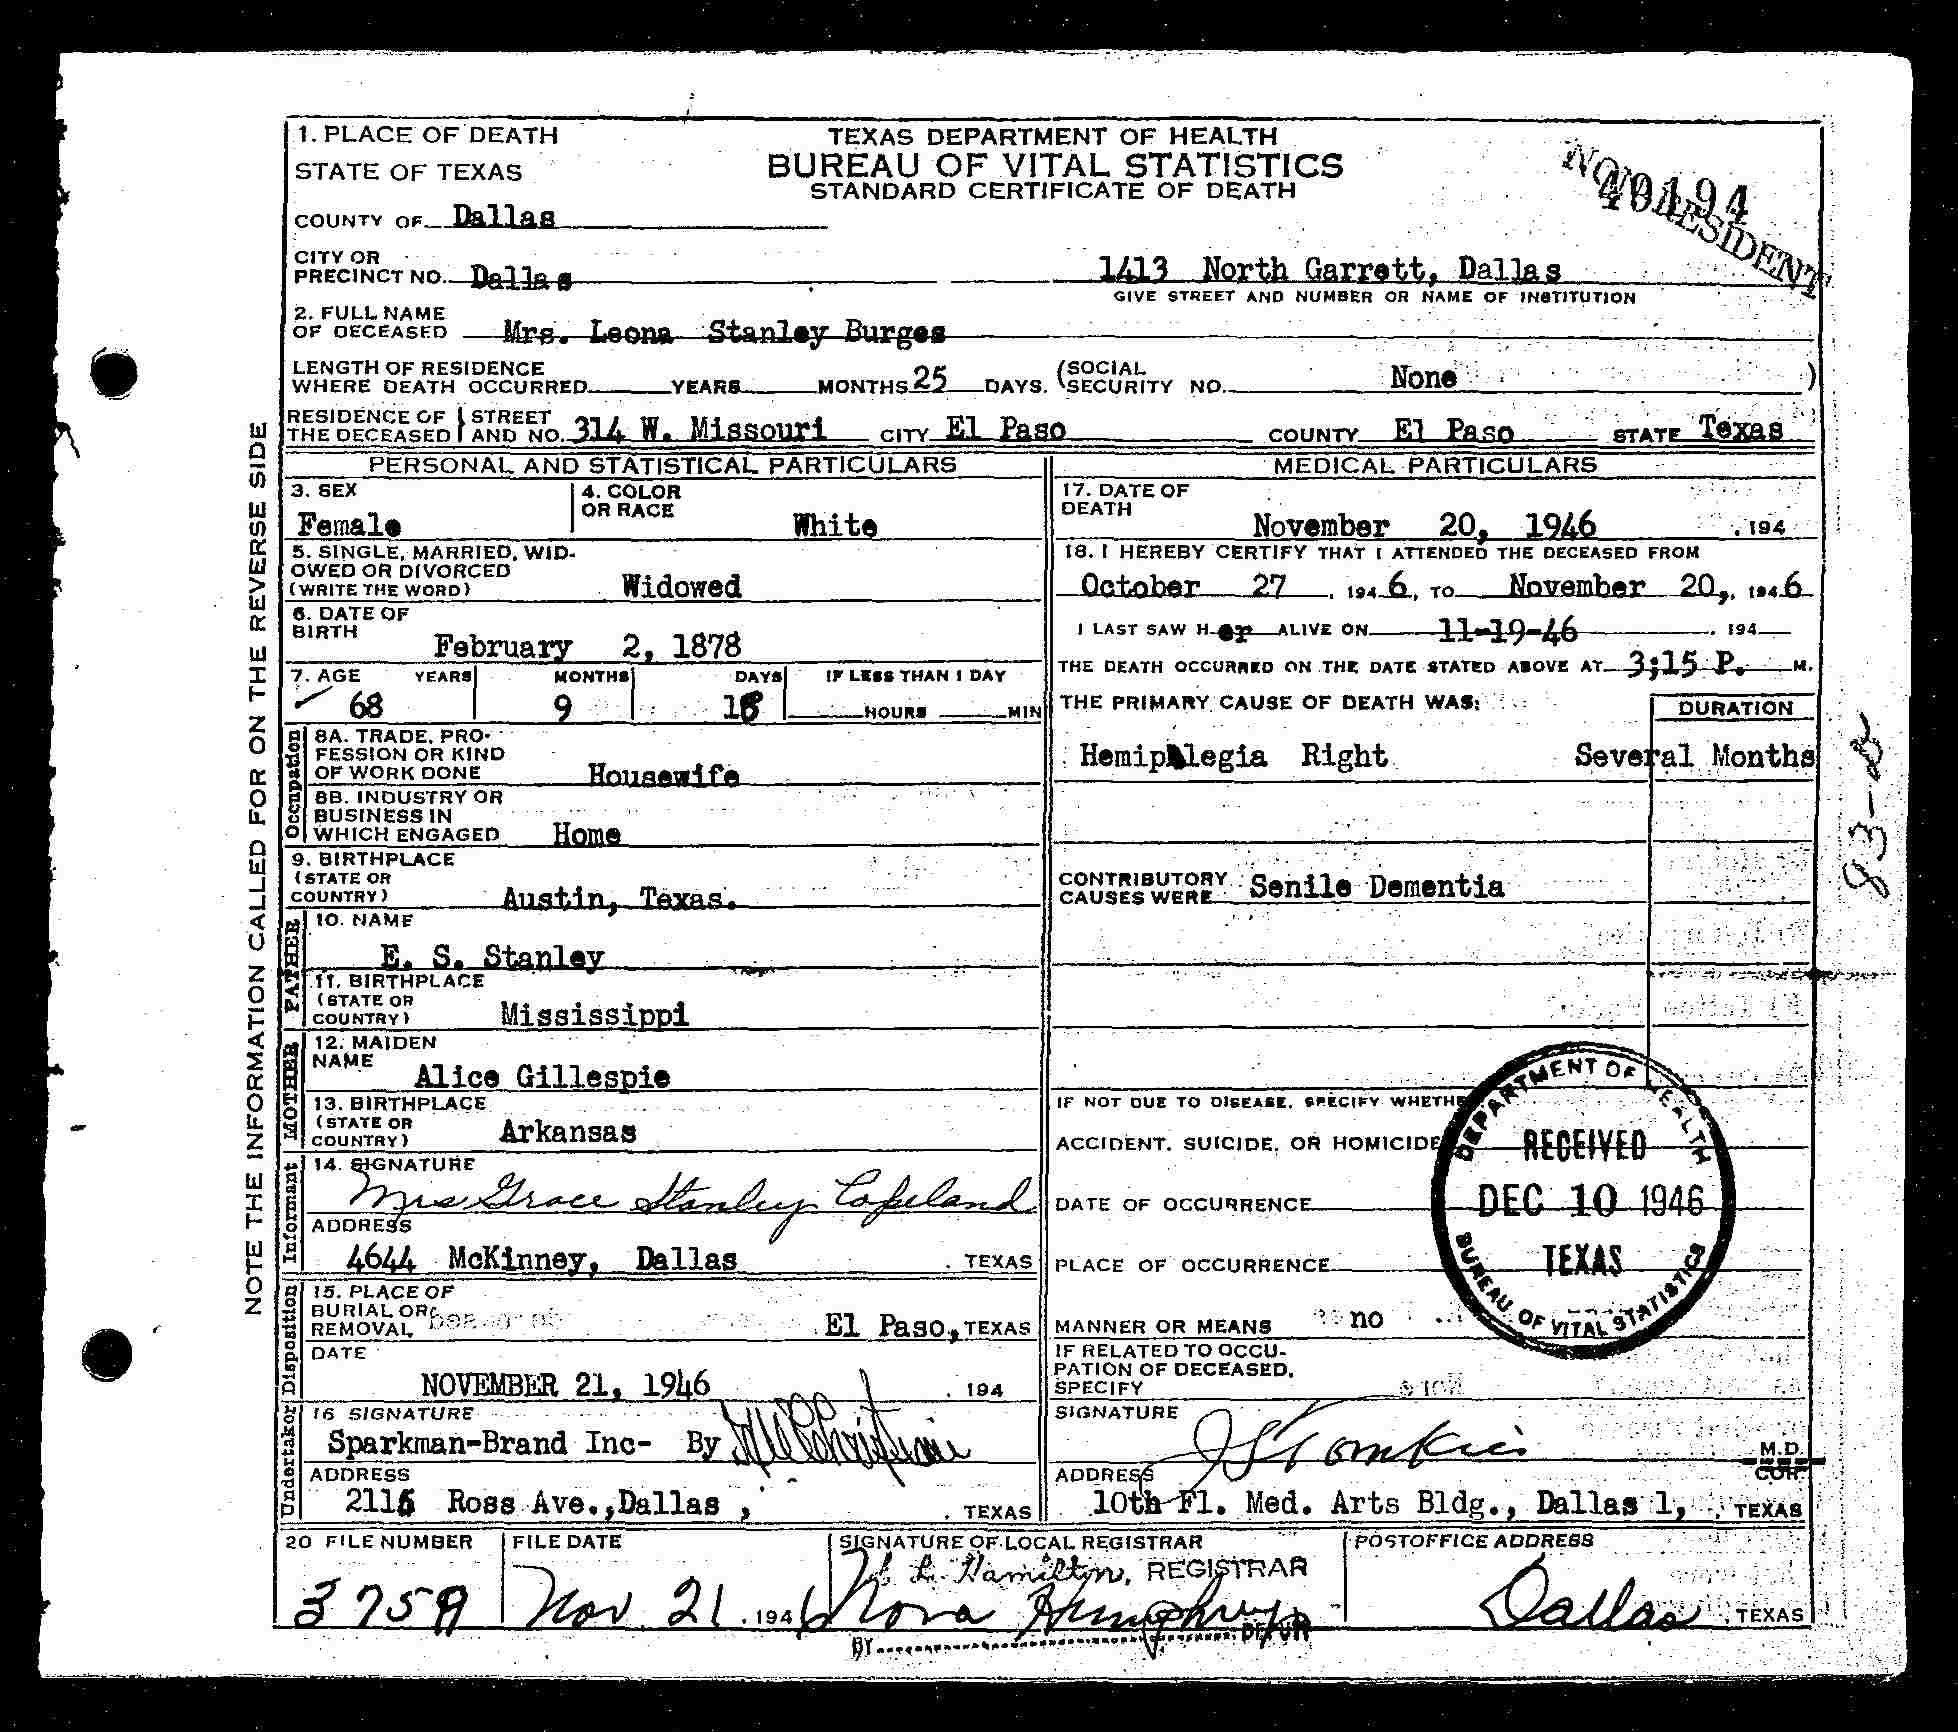 1. PLACE OF DEATH
STATE OF TEXAS
TEXAS DEPARTMENT OF HEALTH
BUREAU OF VITAL STATISTICS
STANDARD CERTIFICATE OF DEATH
NON RESIDENT
40194
COUNTY OF Dallas
CITY OR
PRECINCT NO. Dallas 1413 North Garrett, Dallas
GIVE STREET AND NUMBER OR NAME OF INSTITUTION
2. FULL NAME
OF DECEASED Mrs. Leona Stanley Burges
LENGTH OF RESIDENCE
WHERE DEATH OCCURRED YEARS MONTHS 25 DAYS. (SOCIAL SECURITY NO. None )
RESIDENCE OF THE DECEASED } STREET AND NO. 314 W. Missouri CITY El Paso COUNTY El Paso STATE Texas
NOTE THE INFORMATION CALLED FOR ON THE REVERSE SIDE
PERSONAL AND STATISTICAL PARTICULARS
3. SEX
Female
4. COLOR
OR RACE White
5. SINGLE, MARRIED, WID-
OWED OR DIVORCED
(WRITE THE WORD) Widowed
6. DATE OF
BIRTH February 2, 1878
7. AGE YEARS MONTHS DAYS IF LESS THAN 1 DAY
68 9 18 HOURS MIN
Occupation
8A. TRADE, PRO-
FESSION OR KIND
OF WORK DONE Housewife
8B. INDUSTRY OR
BUSINESS IN
WHICH ENGAGED Home
9. BIRTHPLACE
(STATE OR
COUNTRY) Austin, Texas.
FATHER
10. NAME
E. S. Stanley
11. BIRTHPLACE
(STATE OR
COUNTRY) Mississippi
MOTHER
12. MAIDEN
NAME Alice Gillespie
13. BIRTHPLACE
(STATE OR
COUNTRY) Arkansas
Informant
14. SIGNATURE
Mrs Grace Stanley Copeland
ADDRESS
4644 McKinney, Dallas . TEXAS
Disposition
15. PLACE OF
BURIAL OR
REMOVAL El Paso, TEXAS
DATE
NOVEMBER 21, 1946 . 194
Undertaker
16 SIGNATURE
Sparkman-Brand Inc- By
ADDRESS
2115 Ross Ave., Dallas , . TEXAS
MEDICAL PARTICULARS
17. DATE OF
DEATH November 20, 1946 . 194
18. I HEREBY CERTIFY THAT I ATTENDED THE DECEASED FROM
October 27 . 194 6, TO November 20,, 194 6
I LAST SAW H er ALIVE ON 11-19-46 . 194
THE DEATH OCCURRED ON THE DATE STATED ABOVE AT 3;15 P. M.
THE PRIMARY CAUSE OF DEATH WAS: DURATION
Hemiplegia Right Several Months
83-B
CONTRIBUTORY
CAUSES WERE Senile Dementia
IF NOT DUE TO DISEASE, SPECIFY WHETHE
ACCIDENT, SUICIDE, OR HOMICIDE
DATE OF OCCURRENCE
PLACE OF OCCURRENCE
MANNER OR MEANS no
IF RELATED TO OCCU-
PATION OF DECEASED,
SPECIFY
DEPARTMENT OF HEALTH
RECEIVED
DEC 10 1946
TEXAS
BUREAU OF VITAL STATISTICS
SIGNATURE
J S Tomkies M.D.
ADDRESS
10th Fl. Med. Arts Bldg., Dallas 1, . TEXAS
20 FILE NUMBER FILE DATE SIGNATURE OF LOCAL REGISTRAR POSTOFFICE ADDRESS
Hamilton, REGISTRAR
Nov. 21 . 194 6 Nora Humphrey Dallas . TEXAS
BY